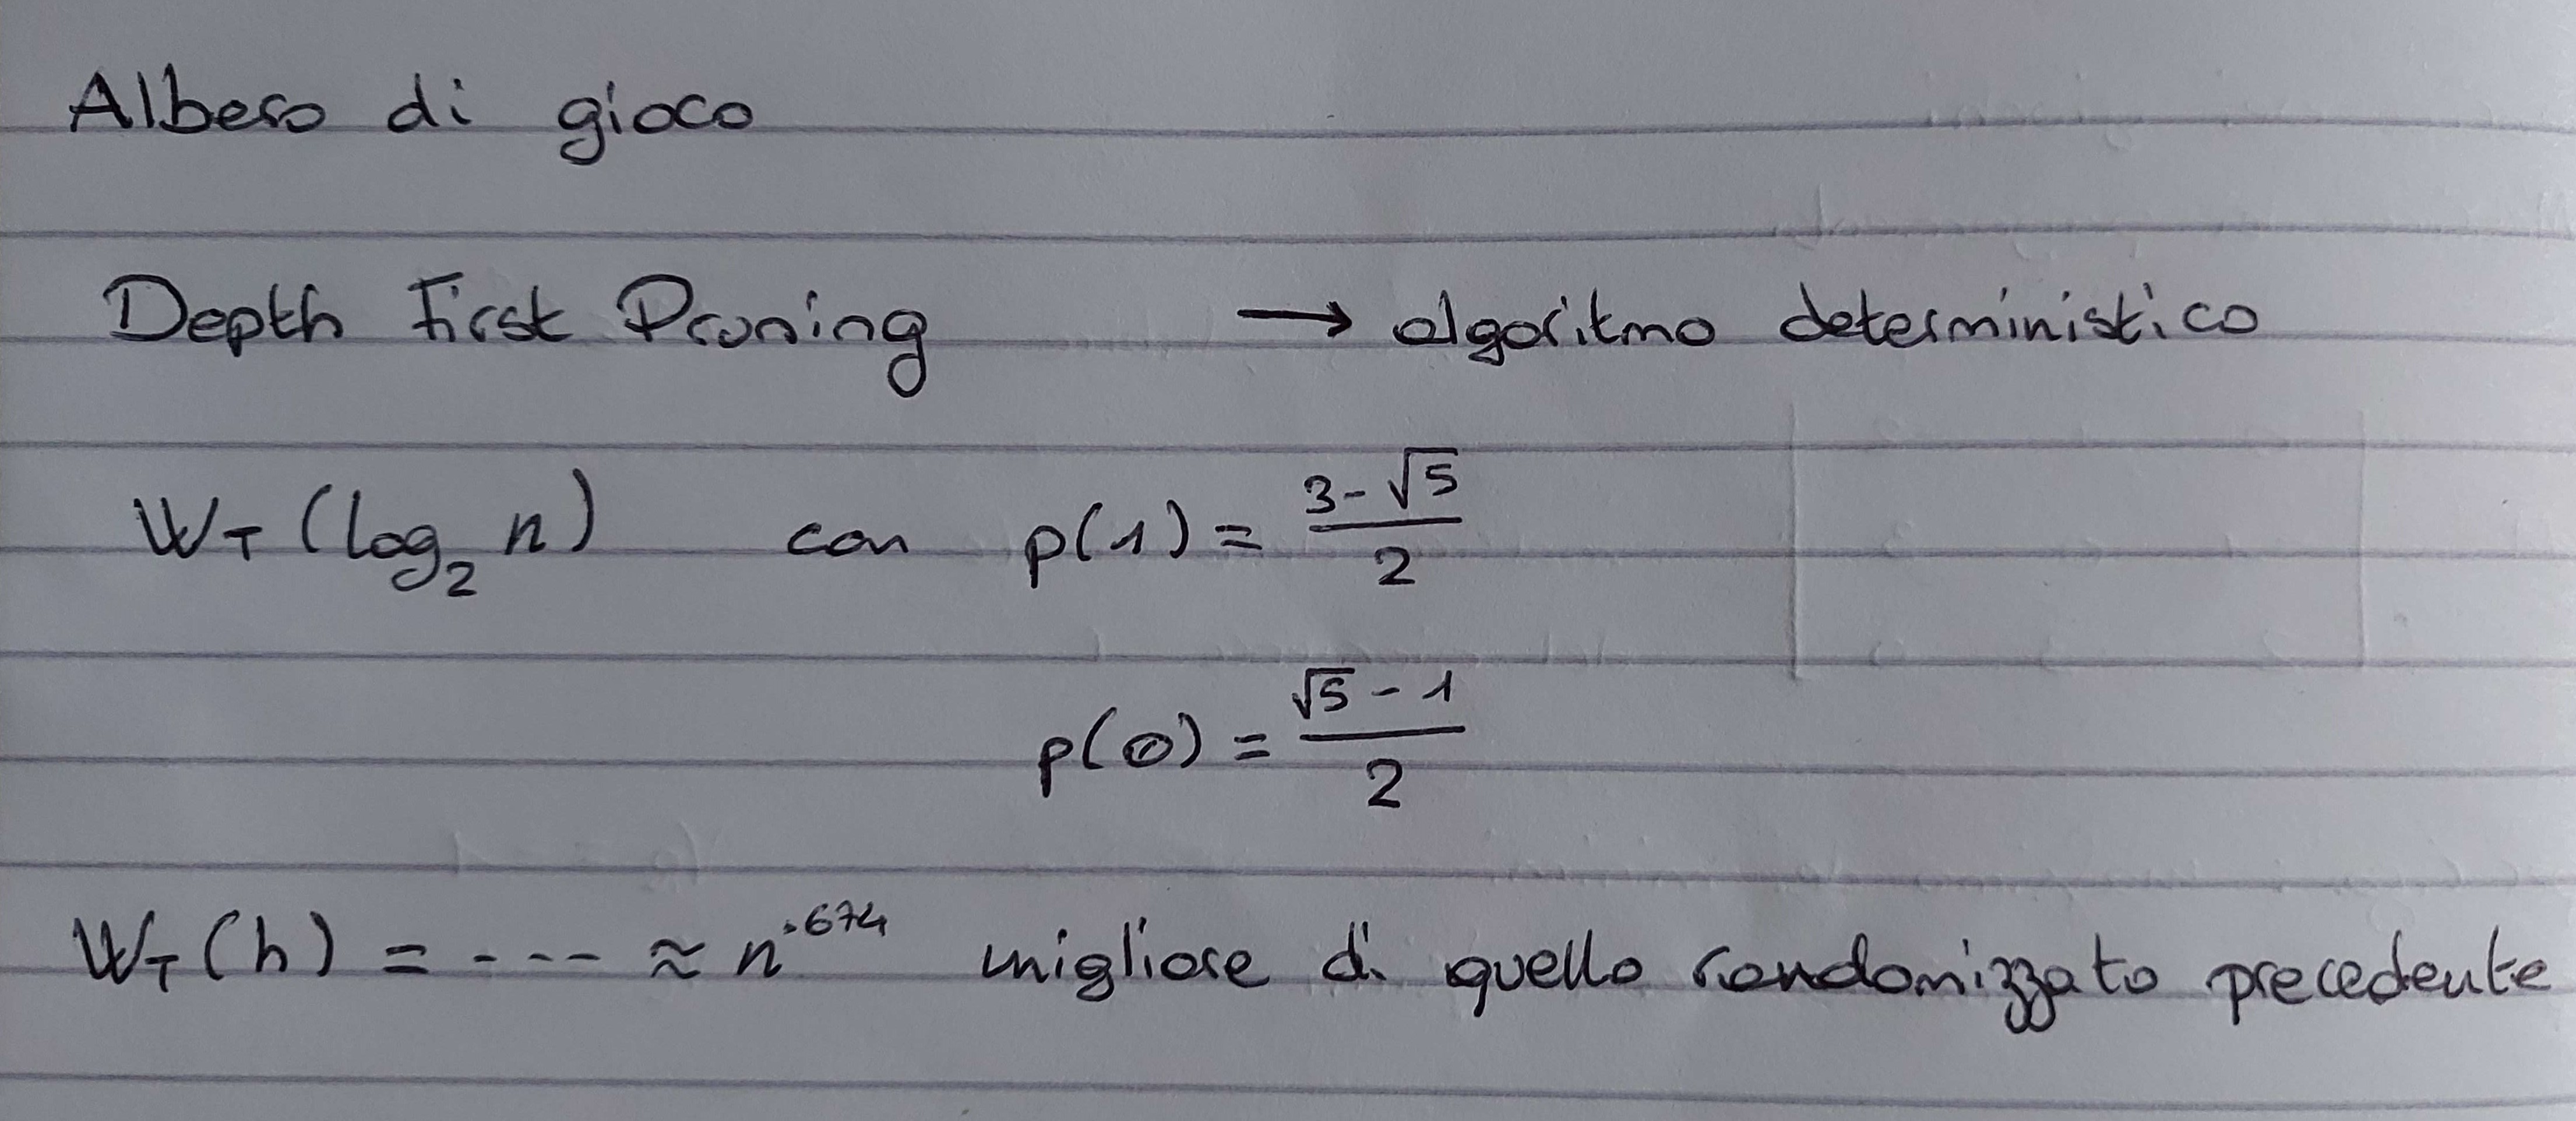 Albero di gioco
Depth First Pruning → algoritmo deterministico
W_T (log_2 n) con p(1) = (3-√5)/2
p(0) = (√5-1)/2
W_T (h) = ---- ≈ n^.674 migliore di quello randomizzato precedente